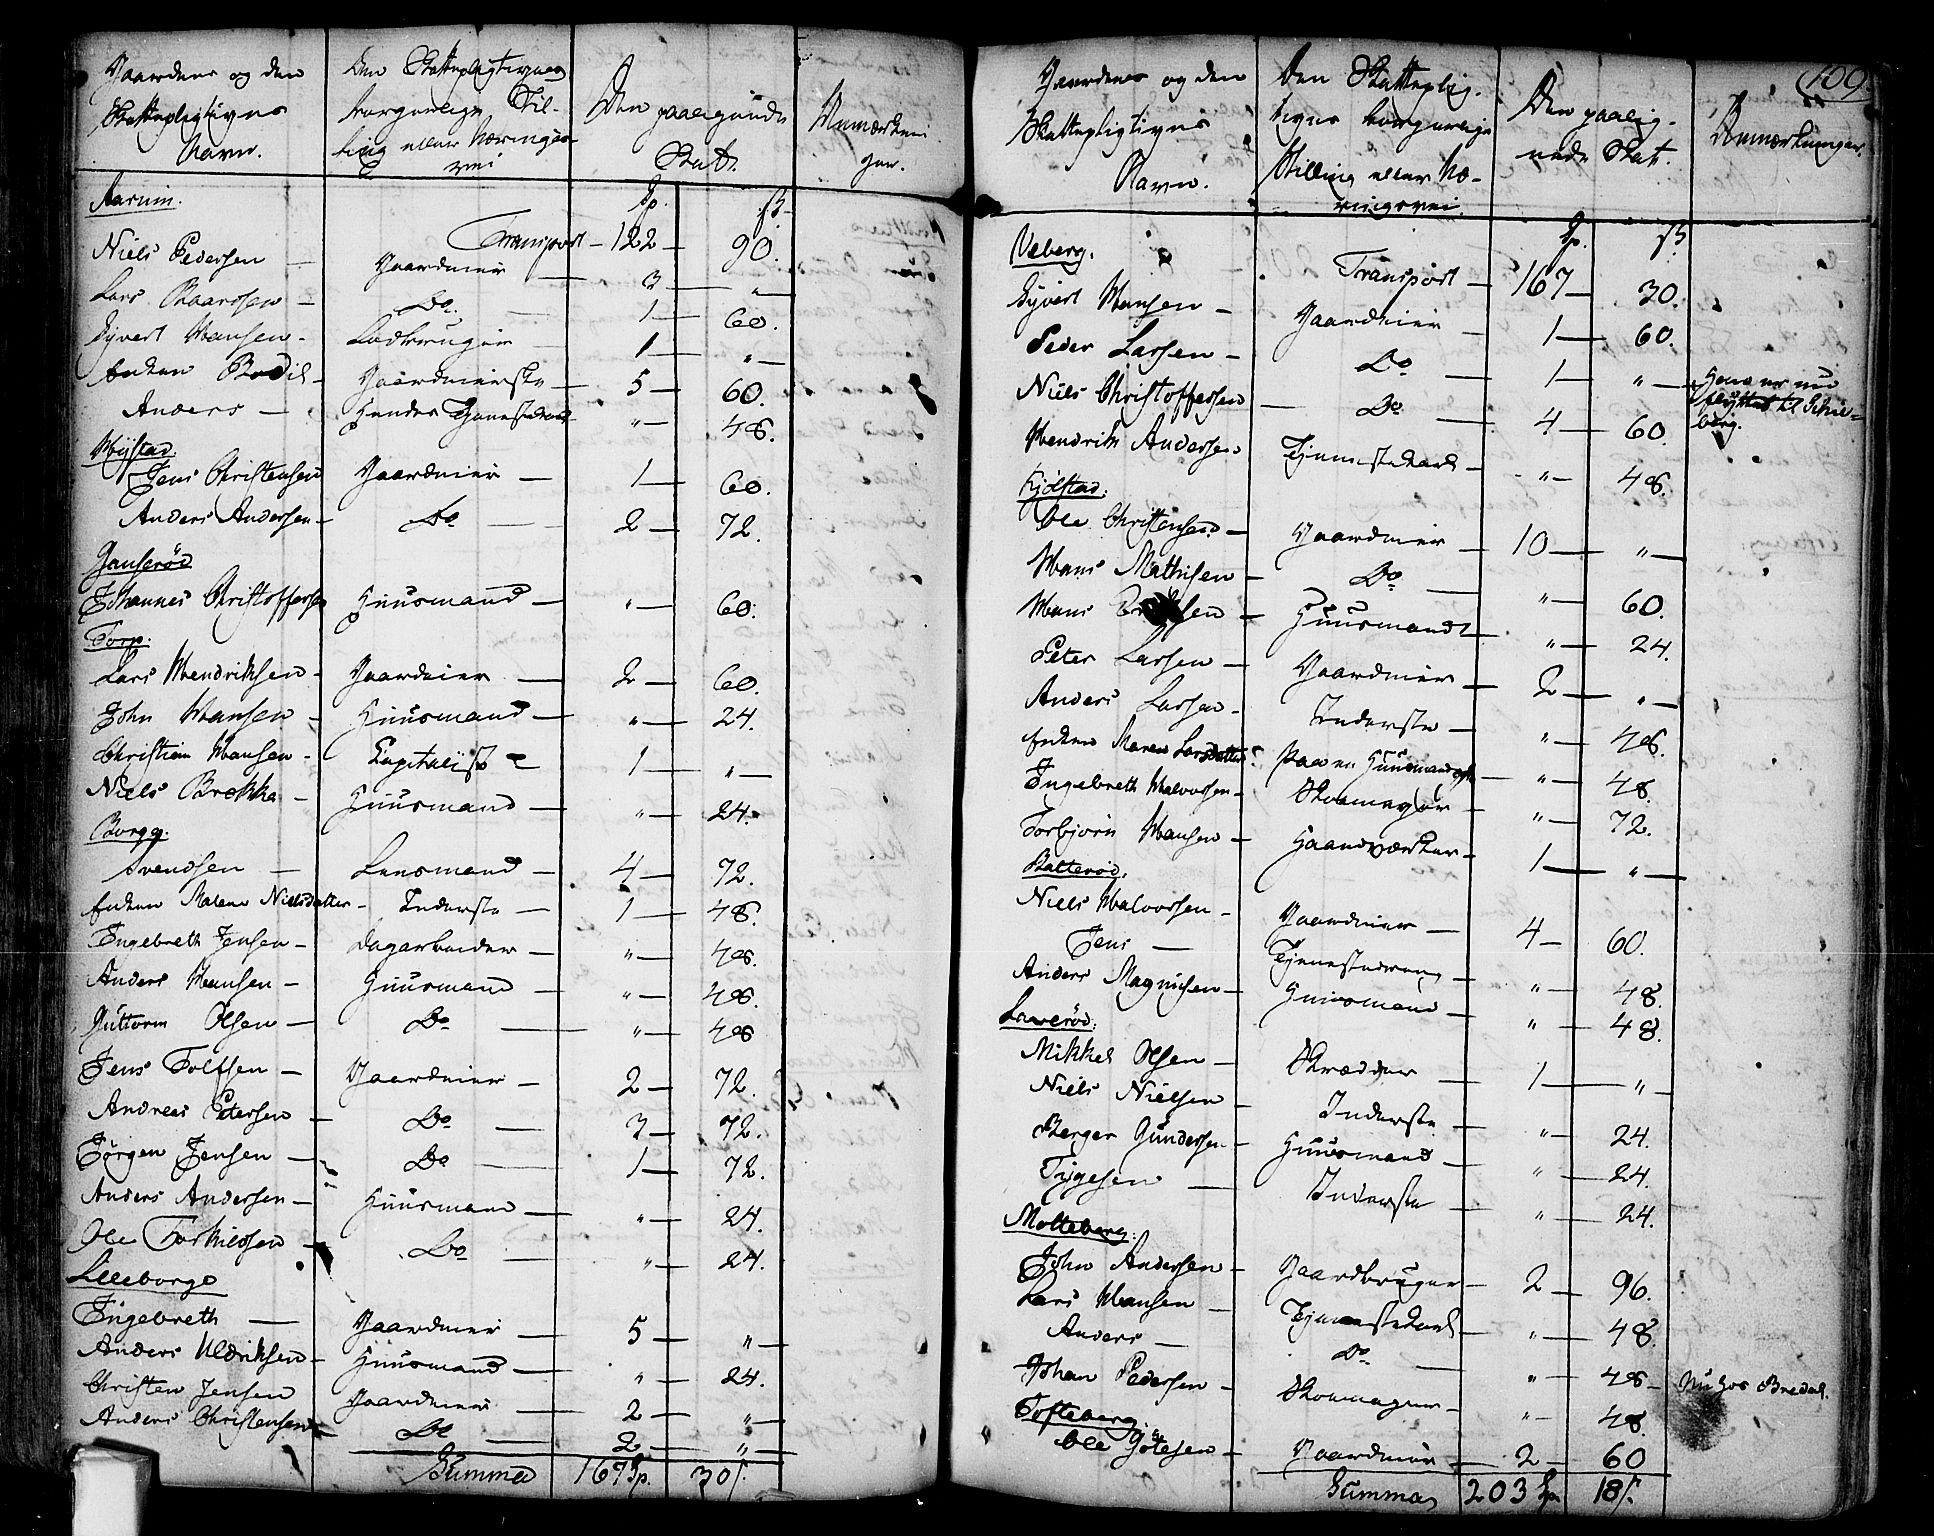 Gaardens og den Skattepligtiges Navn.
Den Skattepligtiges borgerlige Stilling eller Næringsvei
Den paalignede Skat.
Anmærkninger.
Aarum.
Sp. ß
Transport – 122 – 90.
Niels Pedersen – Gaardeier – 3 – "
Lars Baarssen – Do – 1 – 60.
Syvert Hansen – Ladbruger – 1 – "
Enken Bodil – Gaardeierske – 5 – 60.
Anders – Hendes Tjenestekarl " – 48.
Mÿstad.
Jens Christensen Gaardeier – 1 – 60.
Anders Andersen – Do – 2 – 72.
Gauserød
Johannes Christoffersen Huusmand – " – 60.
Torp.
Lars Hendriksen – Gaardeier – 2 – 60.
John Hansen – Huusmand – " – 24.
Christian Hansen – Capitalist – 1 – "
Niels Brekke – Huusmand – " – 24.
Borge.
Svendsen – Lensmand – 4 – 72.
Enken Malene Nielsdatter – Inderste – 1 – 48.
Ingebreth Jensen – Dagarbeider – " – 48.
Anders Hansen – Huusmand – " – 48.
Guttorm Olsen – Do – " – 48
Jens Tolfsen – Gaardeier – 2 – 72.
Andreas Petersen – Do – 3 – 72.
Jørgen Jensen – Do – 1 – 72.
Anders Andersen – Huusmand – " – 24.
Ole Torkildsen – Do – " – 24.
Lilleborge
Ingebreth – Gaardeier – 5 – "
Anders Uldriksen – Huusmand – " – 24.
Christen Jensen Gaardeier – 2 – "
Anders Christensen – Do – 2 – "
Summa 167 Sp. 30 ß.
109.
Gaardenes og den Skattepligtiges Navn.
Den Skattepligtiges borgerlige Stilling eller Næringsvei.
Den paalignede Skat.
Anmærkninger.
Sp. ß
Veberg.
Transport – 167 – 30.
Syvert Hansen – Gaardeier – 1 – 60.
Peder Larsen – Do – 1 – " –
Niels Christoffersen – Do – 4 – 60.
Hans er nu flyttet til Schieberg.
Hendrik Andersen Tjenestekarl – " – 48.
Kjølstad.
Ole Christensen – Gaardeier – 10 – "
Hans Mathisen – Do – " – 60.
Hans Huusmand – " – 24.
Peter Larsen – Gaardeier – 2 – "
Anders Larsen – Inderste – " – 48.
Enken Maren Larsdatter Paa en Huusmandspl – " – 48.
Ingebreth Halvorsen – Skomager – " – 72.
Torbjørn Hansen – Haandværker – 1 – "
Batterød.
Niels Halvorsen – Gaardeier – 4 – 60.
Jens – Tjenestedreng – " – 48.
Anders Magnusen – Huusmand – " – 48.
Lauerød.
Mikkel Olsen – Skrædder – 1 – "
Niels Nielsen – Inderste – " – 24.
Berger Gundersen – Huusmand – " – 24.
Tygesen – Inderste – " – 24.
Molteberg.
John Andersen – Gaardbruger – 2 – 96.
Lars Hansen – Tjenestekarl – " – 48.
Anders – Do – " – 48 – Nu hos Bredal.
Johan Pedersen – Skomager – " – 48.
Tofteberg.
Ole Götesen – Gaardeier – 2 – 60
Summa 203 Sp 18 ß.